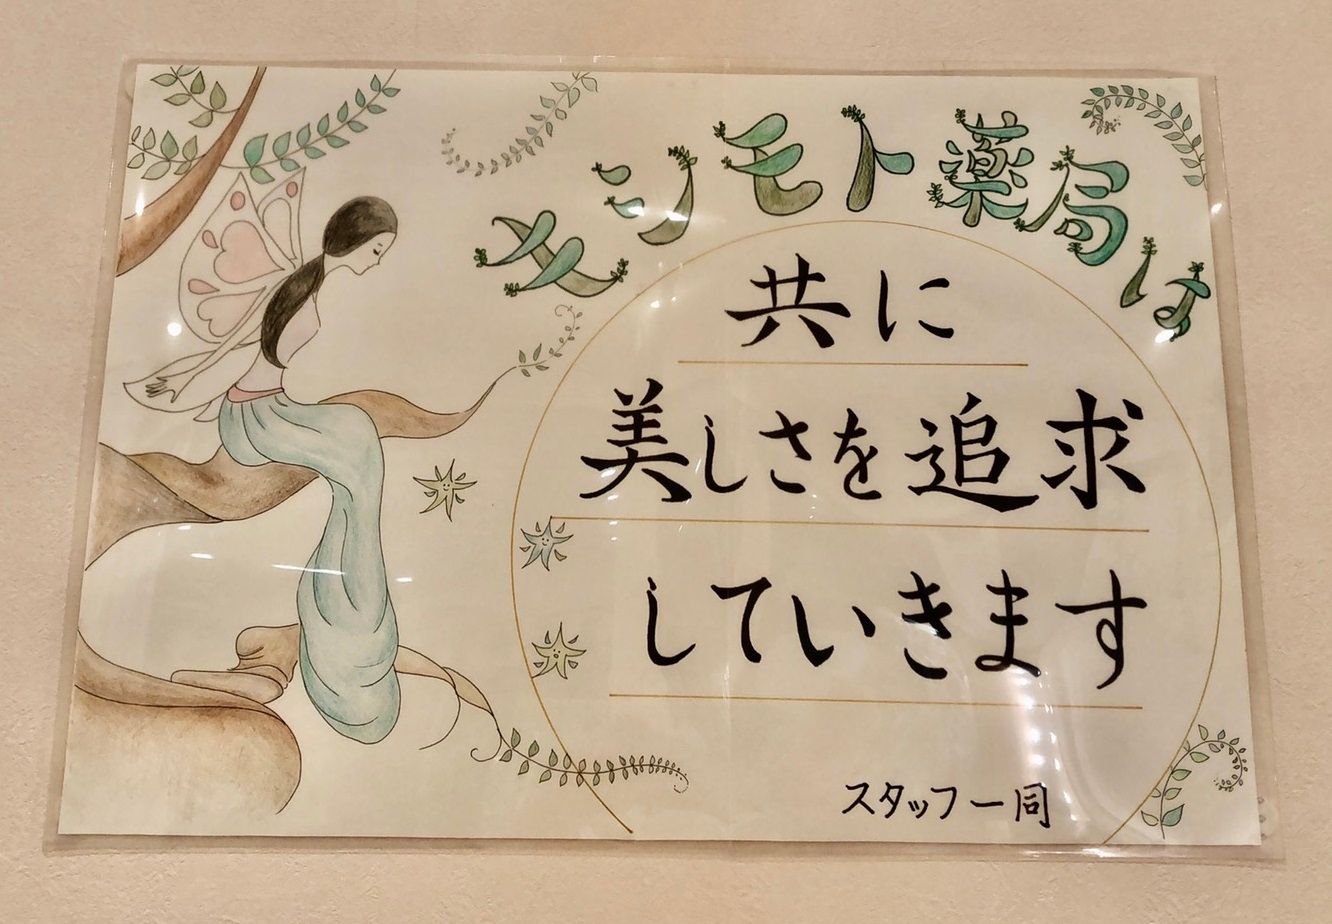 キシモト薬局は
共に
美しさを追求
していきます
スタッフ一同